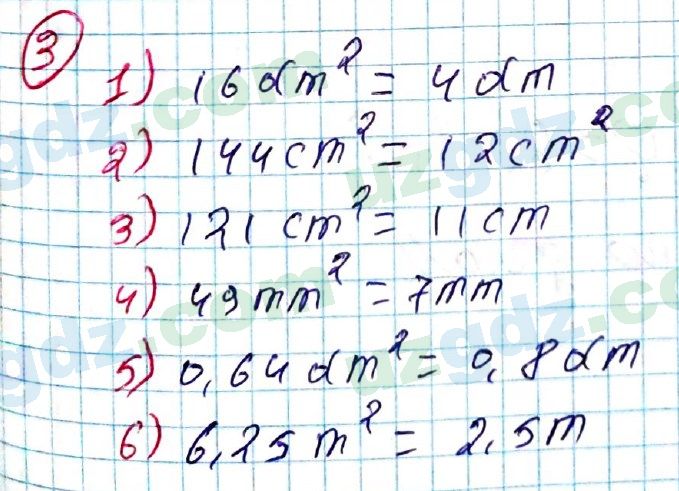 3
1) 16 dm² = 4 dm
2) 144 cm² = 12 cm²
3) 121 cm² = 11 cm
4) 49 mm² = 7 mm
5) 0,64 dm² = 0,8 dm
6) 6,25 m² = 2,5 m